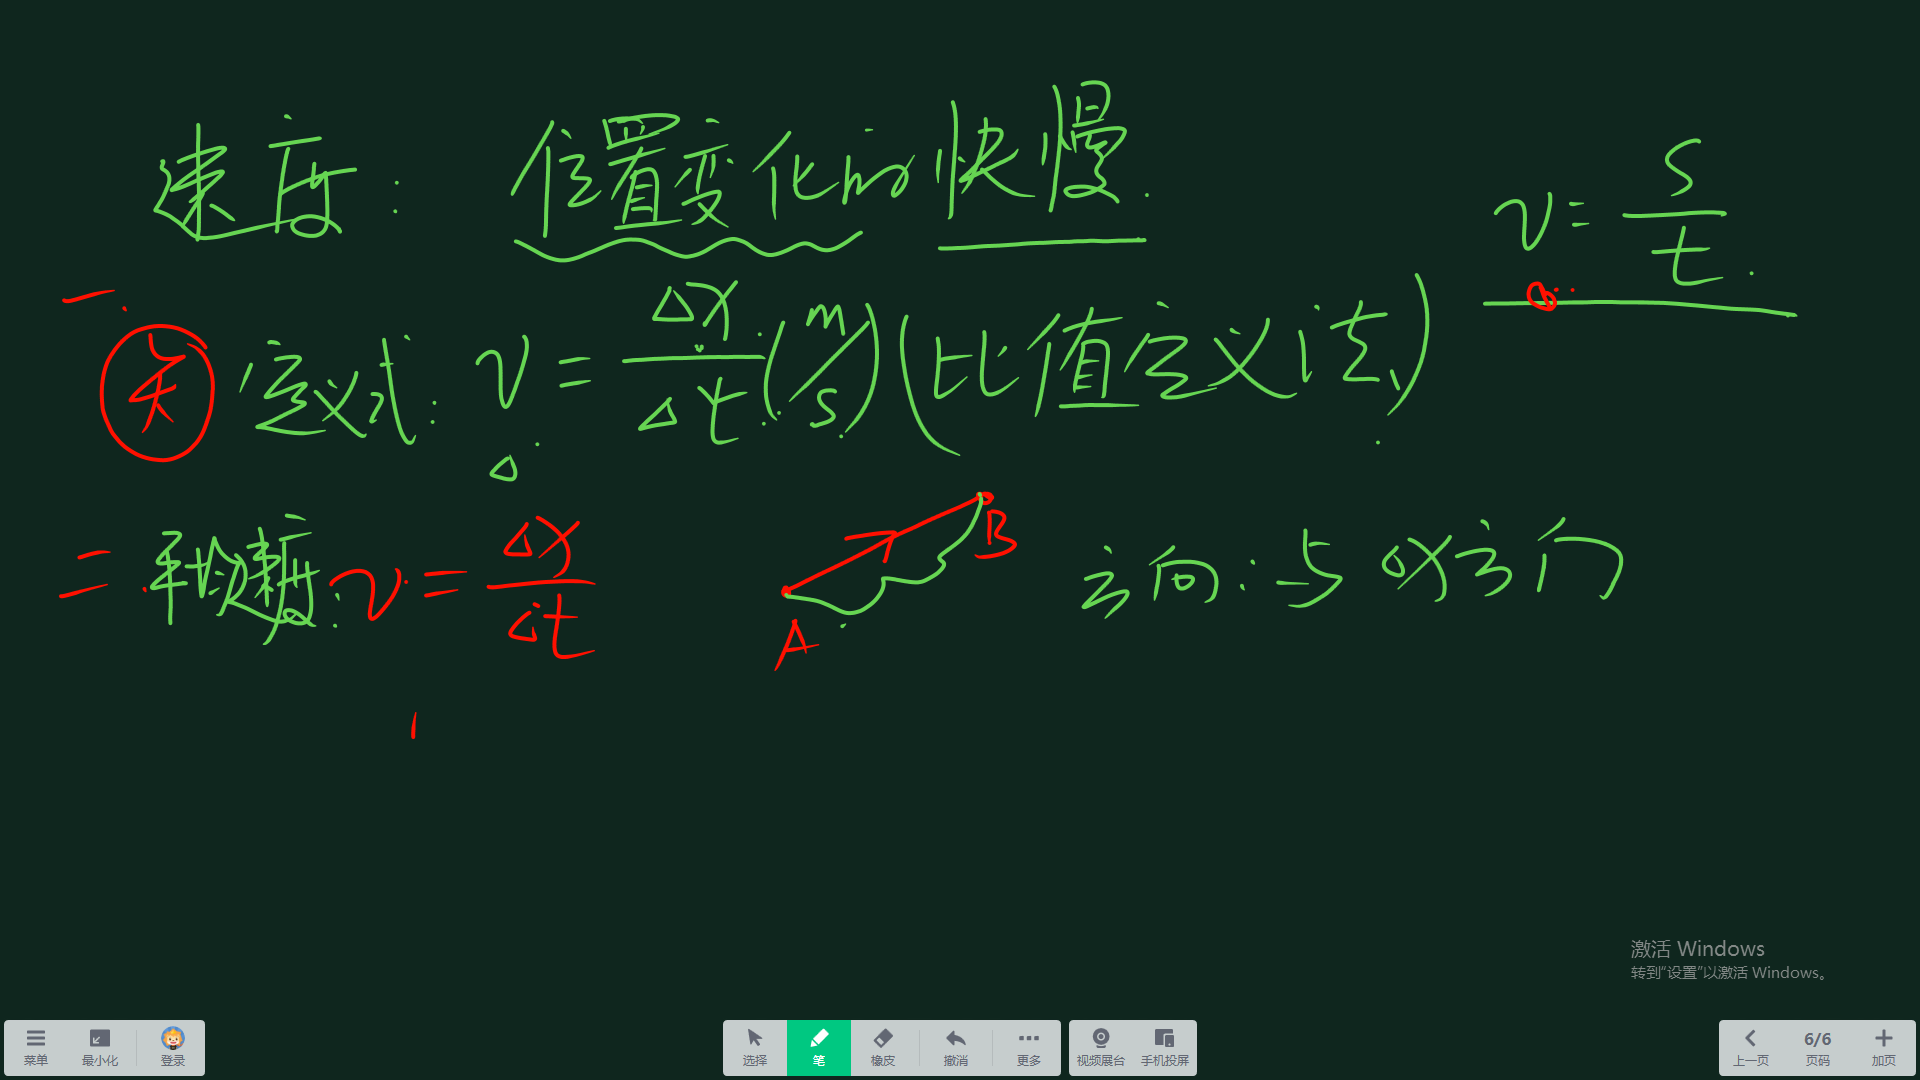 速度: 位置变化的快慢.
v = s/t.
一.
矢 定义式: v = Δx/Δt (m/s) (比值定义法)
Δ
二.平均速度: v = Δx/Δt A B 方向:与Δx方向
激活 Windows
转到"设置"以激活 Windows。
菜单 最小化 登录 选择 笔 橡皮 撤消 更多 视频展台 手机投屏 上一页 6/6 页码 加页